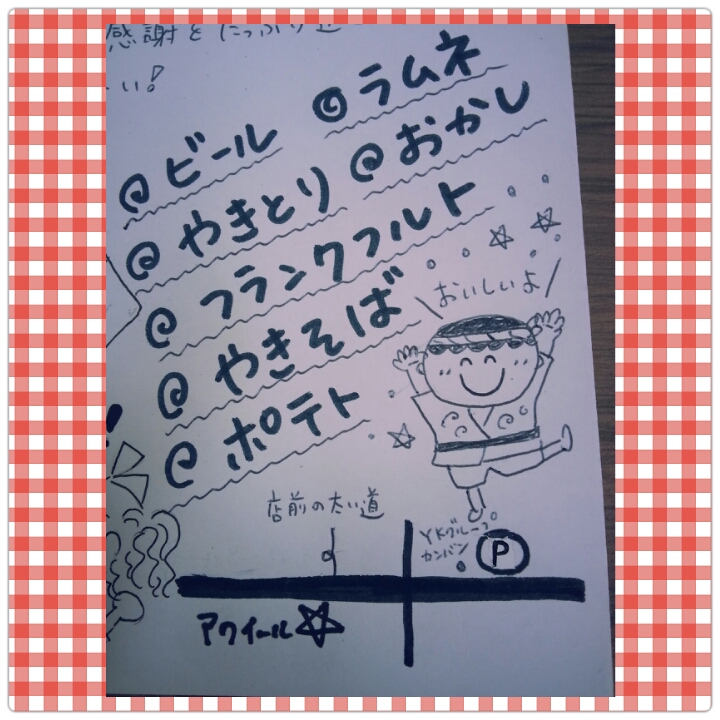 感謝を
い!
◎ラムネ
@ビール
@おかし
@やきとり
@フランクフルト
@やきそば
@ポテト
\おいしいよ/
店前の太い道
YKグループ
カンバン
P
アワイール